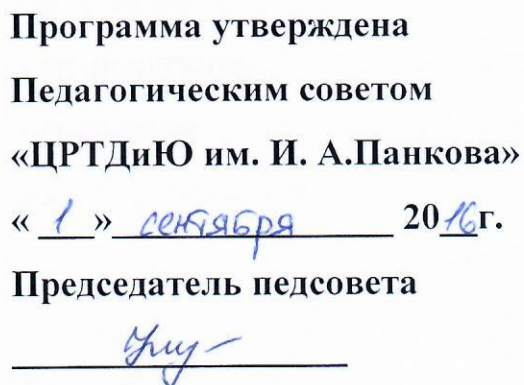 Программа утверждена
Педагогическим советом
«ЦРТДиЮ им. И. А.Панкова»
« 1 » сентября 2016г.
Председатель педсовета